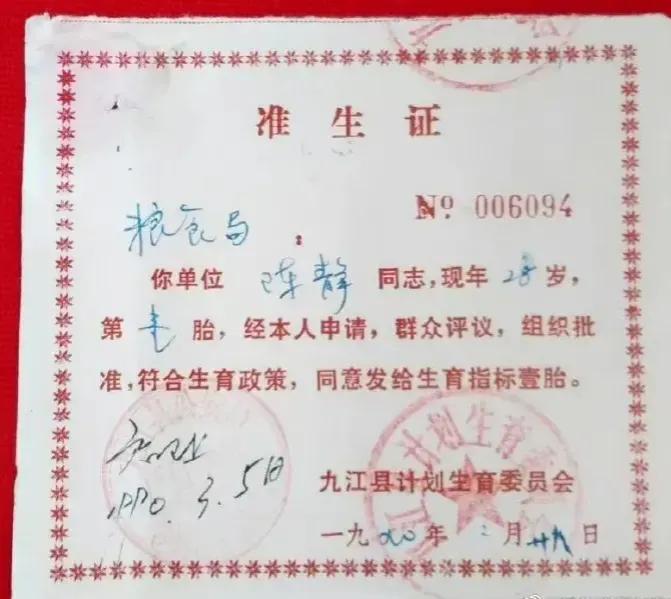 准生证
No 006094
粮食局：
你单位 陈静 同志，现年 28 岁，
第 胎，经本人申请，群众评议，组织批
准，符合生育政策，同意发给生育指标壹胎。
计划生育委员会
1990.3.5日
九江县计划生育委员会
一九 年 月 日